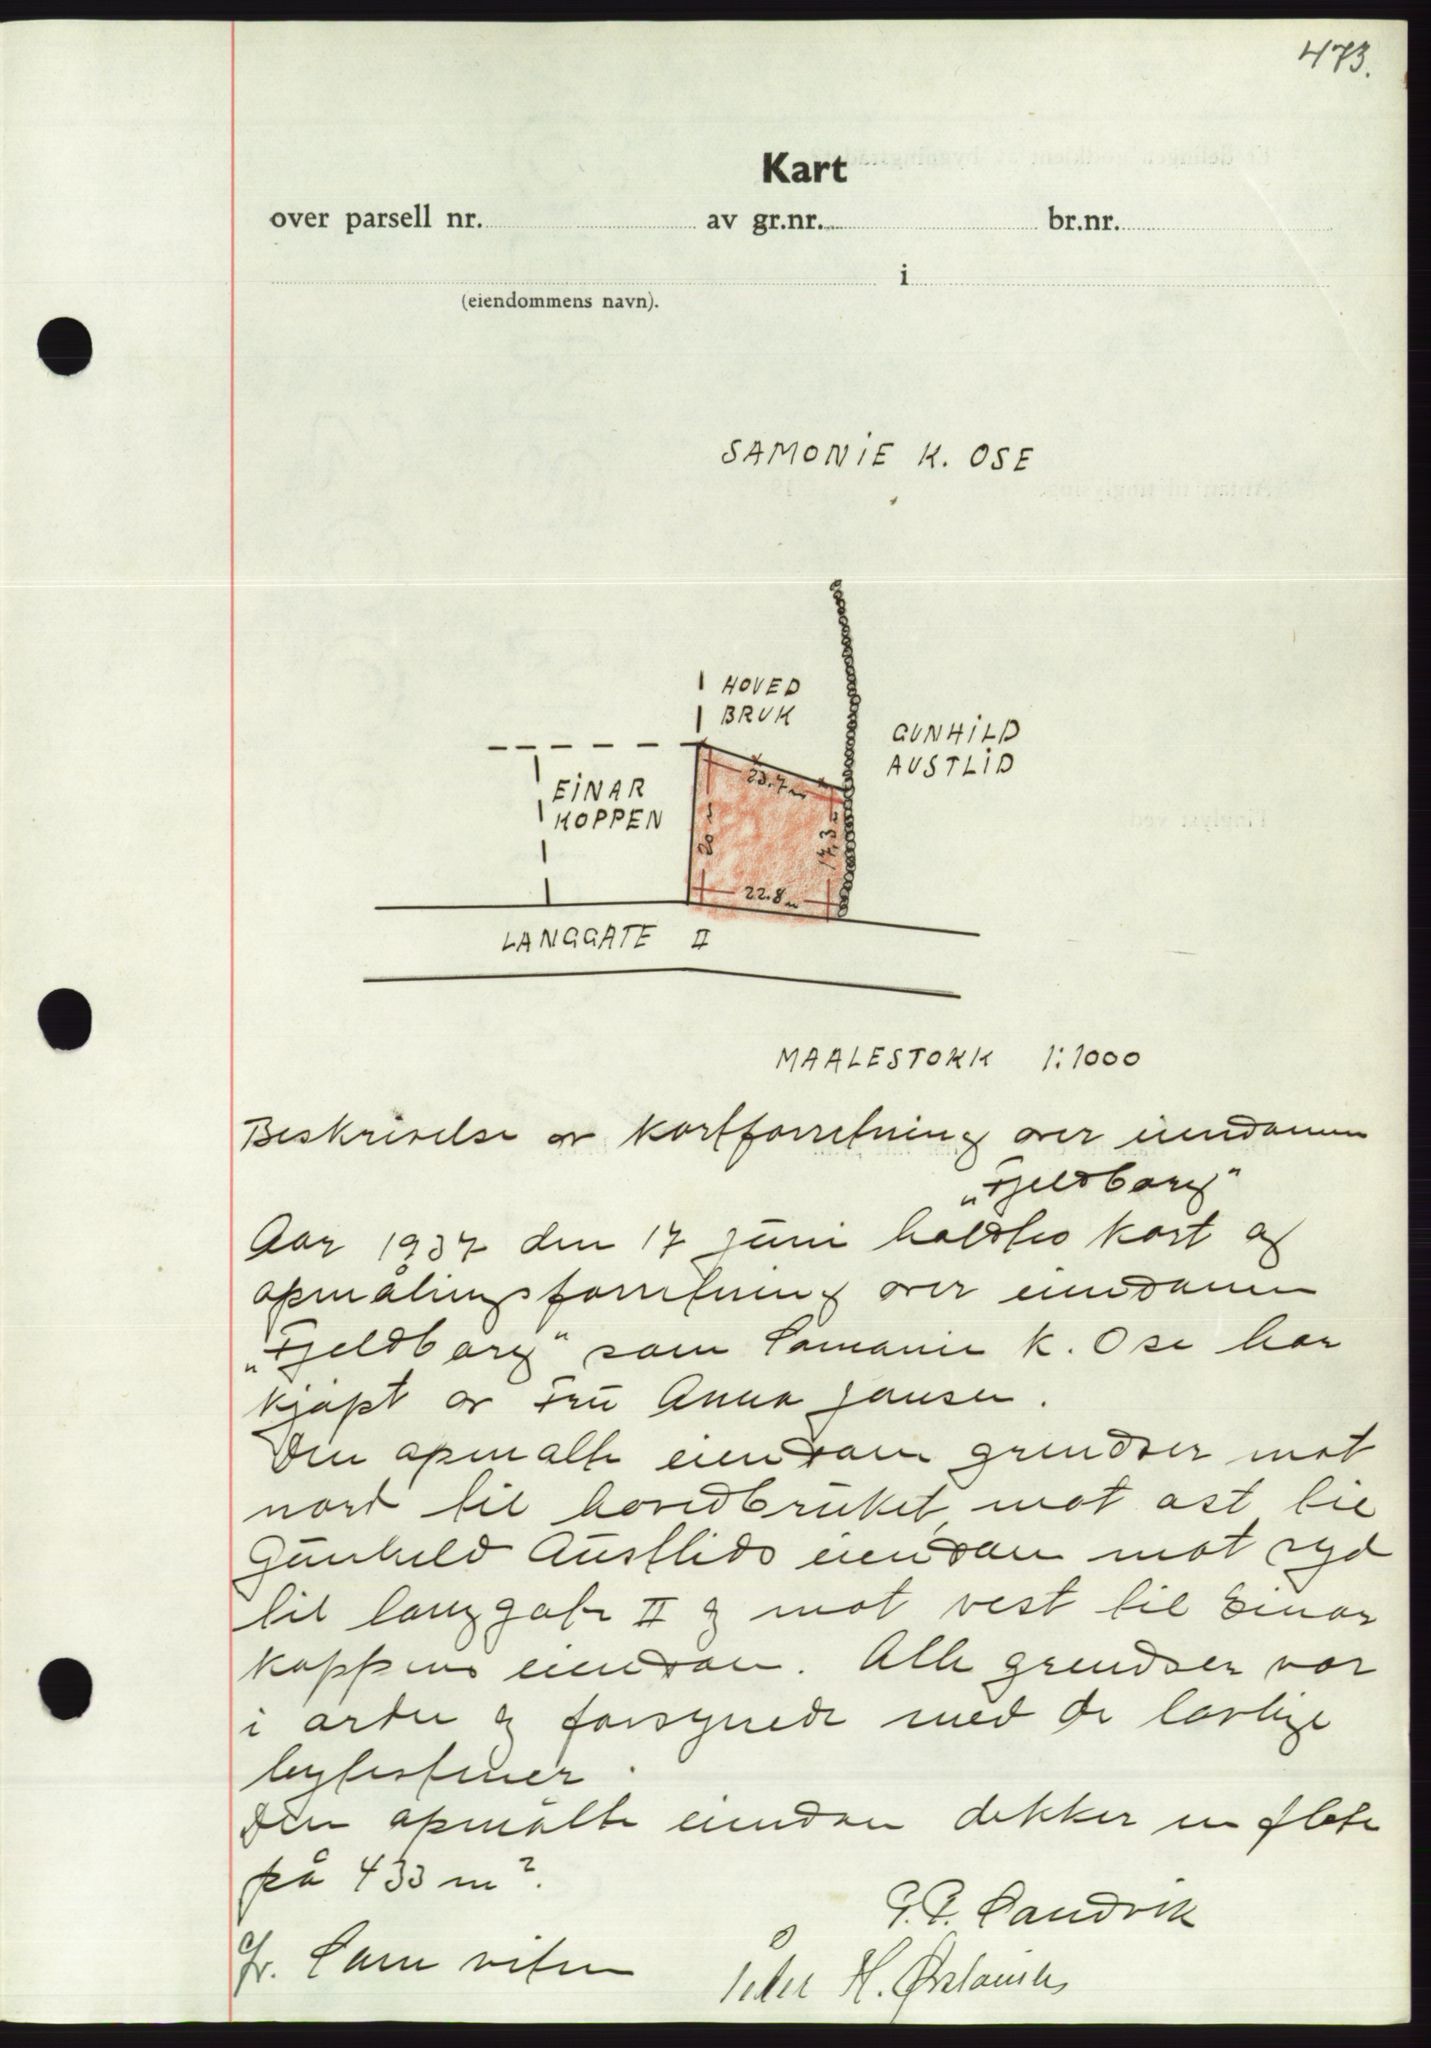 473.
Kart
over parsell nr. av gr.nr. br.nr.
i
(eiendommens navn).
SAMONIE K. OSE
HOVED
BRUK
GUNHILD
AUSTLID
EINAR
KOPPEN
23.7 m
20 m
17,3 m
22.8 m
LANGGATE II
MAALESTOKK 1:1000
Beskrivelse av kartforretning over eiendomen
"Fjeldborg"
Aar 1937 den 17 juni holdtes kart og
opmålingsforretning over eiendomen
"Fjeldborg" som Samonie K. Ose har
kjøpt av Fru Anna Jansen.
Den opmålte eiendom grendser mot
nord til hovedbruket, mot øst til
Gunhild Austlids eiendom mot syd
til langgate II og mot vest til Einar
Koppens eiendom. Alle grendser var
i orden og forsynede med de lovlige
bytesteiner.
Den opmålte eiendom dekker en flate
på 433 m².
P. P. Sandvik
Som vitne
Peder H.